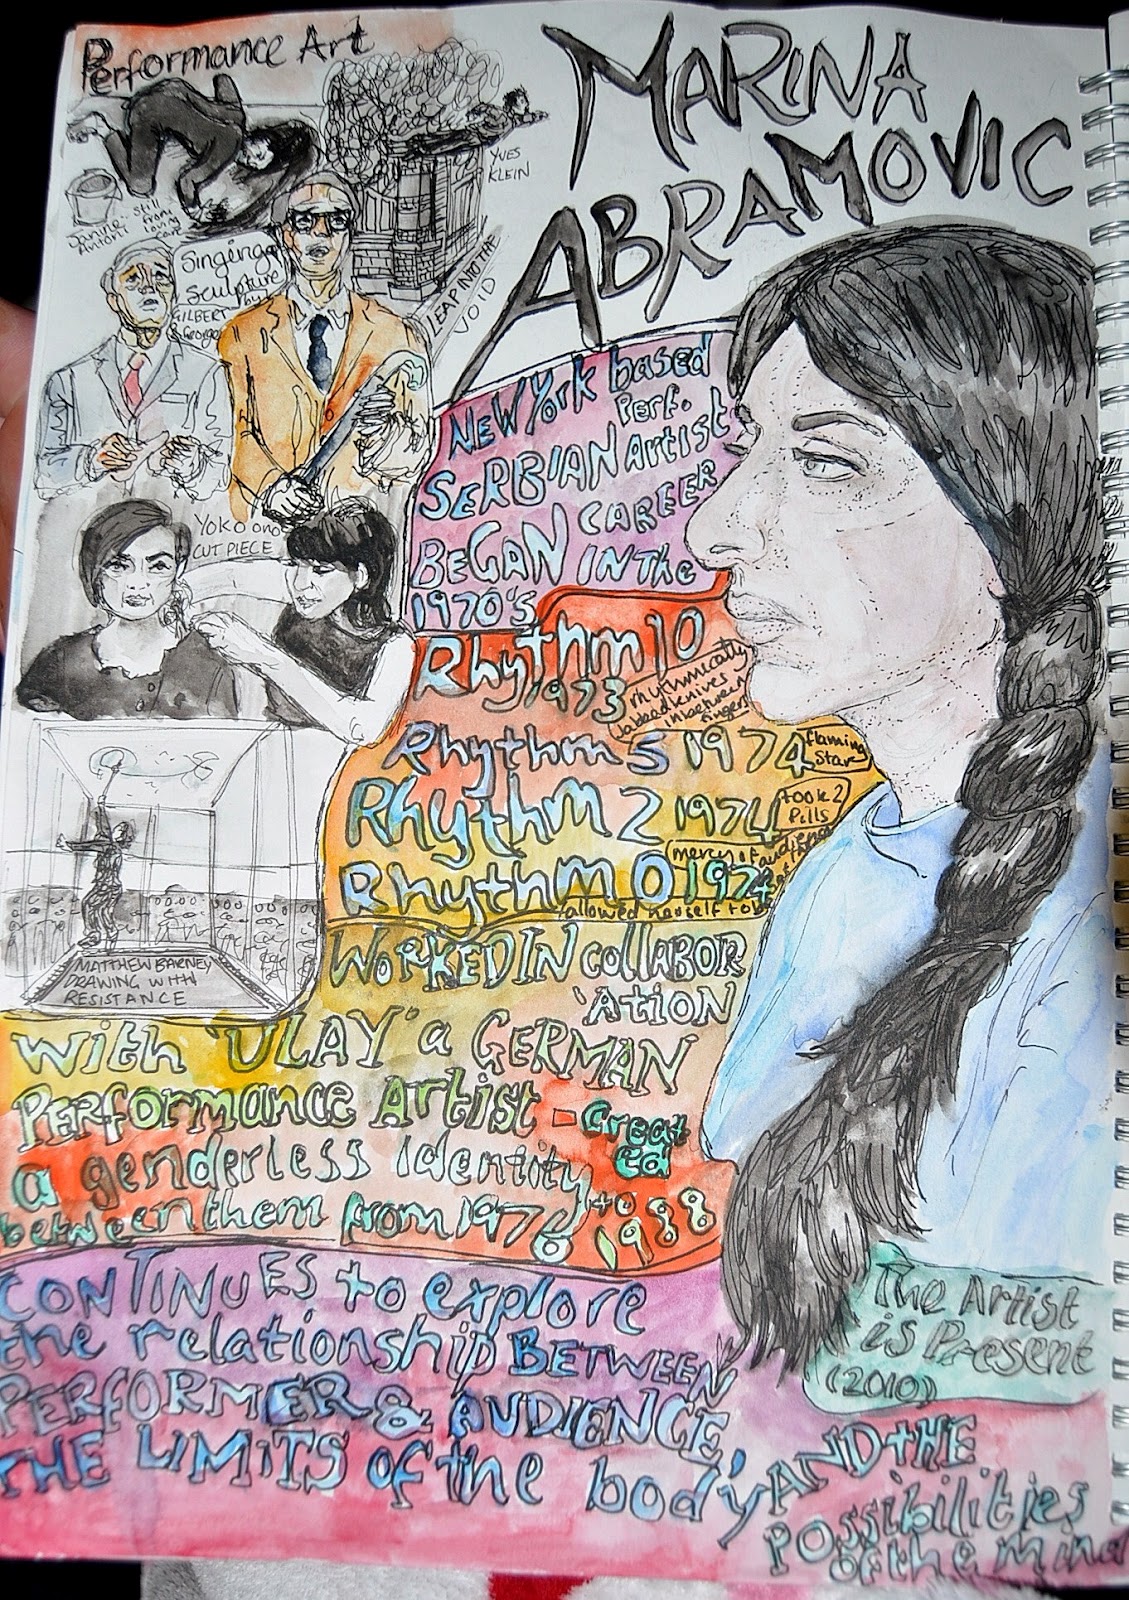 Performance Art
MARINA
ABRAMOVIC
YVES
KLEIN
LEAP INTO THE
VOID
Janine
Antoni
Still
from
loving
care
Singing
Sculpture
by
GILBERT
& George
YOKO ono
CUT PIECE
MATTHEW BARNEY
DRAWING WITH
RESISTANCE
NEW YORK based
SERBIAN Perf. Artist.
BEGAN CAREER
IN THE
1970's
Rhythm 10
1973
rhythmically
jabbed knives
inbetween
fingers
Rhythm 5 1974
flaming
Star
Rhythm 2 1974
took 2
Pills
Rhythm 0 1974
allowed herself to be
mercy of audience
WORKED IN COLLABOR
'ATION
With 'ULAY' a GERMAN
PERformance Artist - Creat
ed
a genderless identity
between them from 1976 to
1988
CONTINUES to explore
the relationship BETWEEN
PERFORMER & AUDIENCE,
THE LIMITS of the body,
AND tHE
possibilities
of the mind
The Artist
is Present
(2010)